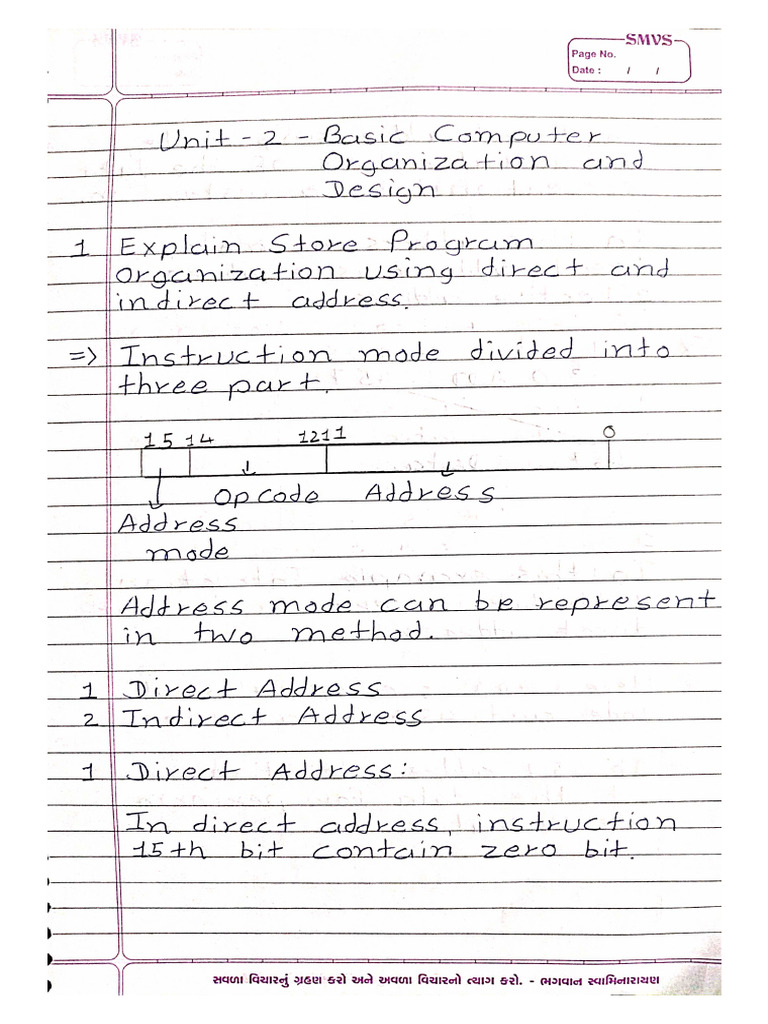 SMVS
Page No.
Date : / /
Unit - 2 - Basic Computer
Organization and
Design
1 Explain Store Program
Organization using direct and
indirect address.
=> Instruction mode divided into
three part.
15 14 12 11 0
Opcode Address
Address
mode
Address mode can be represent
in two method.
1 Direct Address
2 Indirect Address
1 Direct Address:
In direct address, instruction
15th bit contain zero bit.
સવળા વિચારનું ગ્રહણ કરો અને અવળા વિચારનો ત્યાગ કરો. - ભગવાન સ્વામિનારાયણ